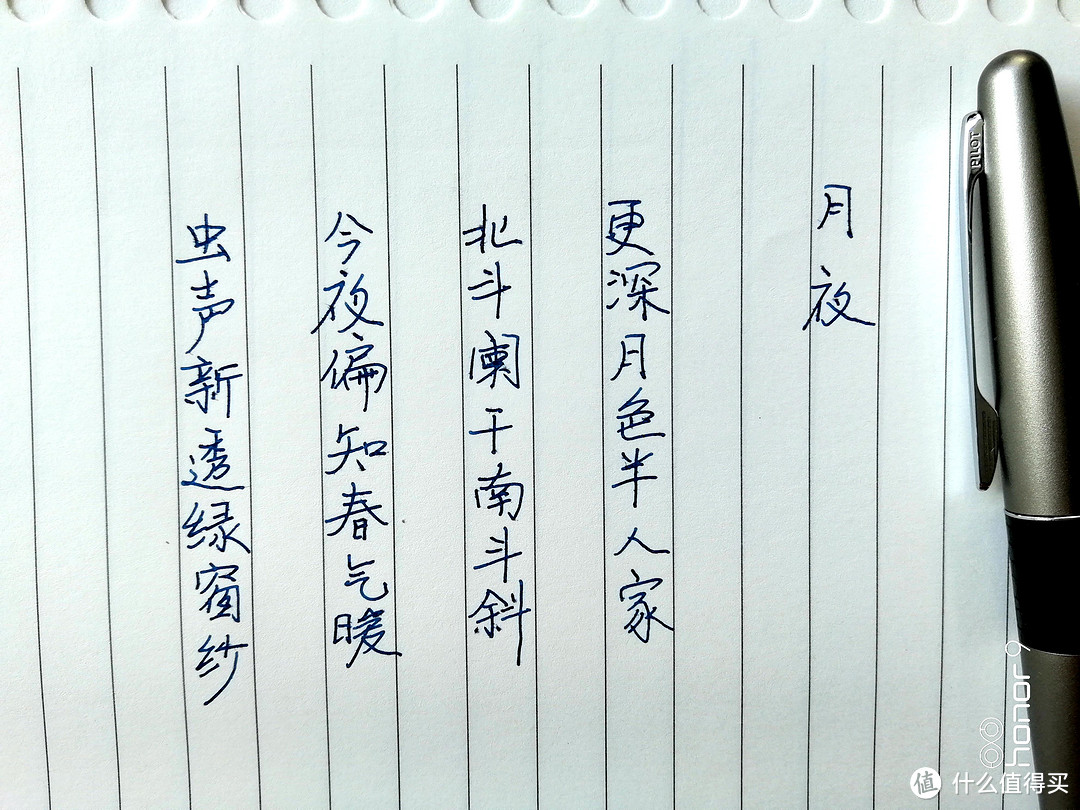 月夜
更深月色半人家
北斗阑干南斗斜
今夜偏知春气暖
虫声新透绿窗纱
PILOT
honor 9
值 什么值得买